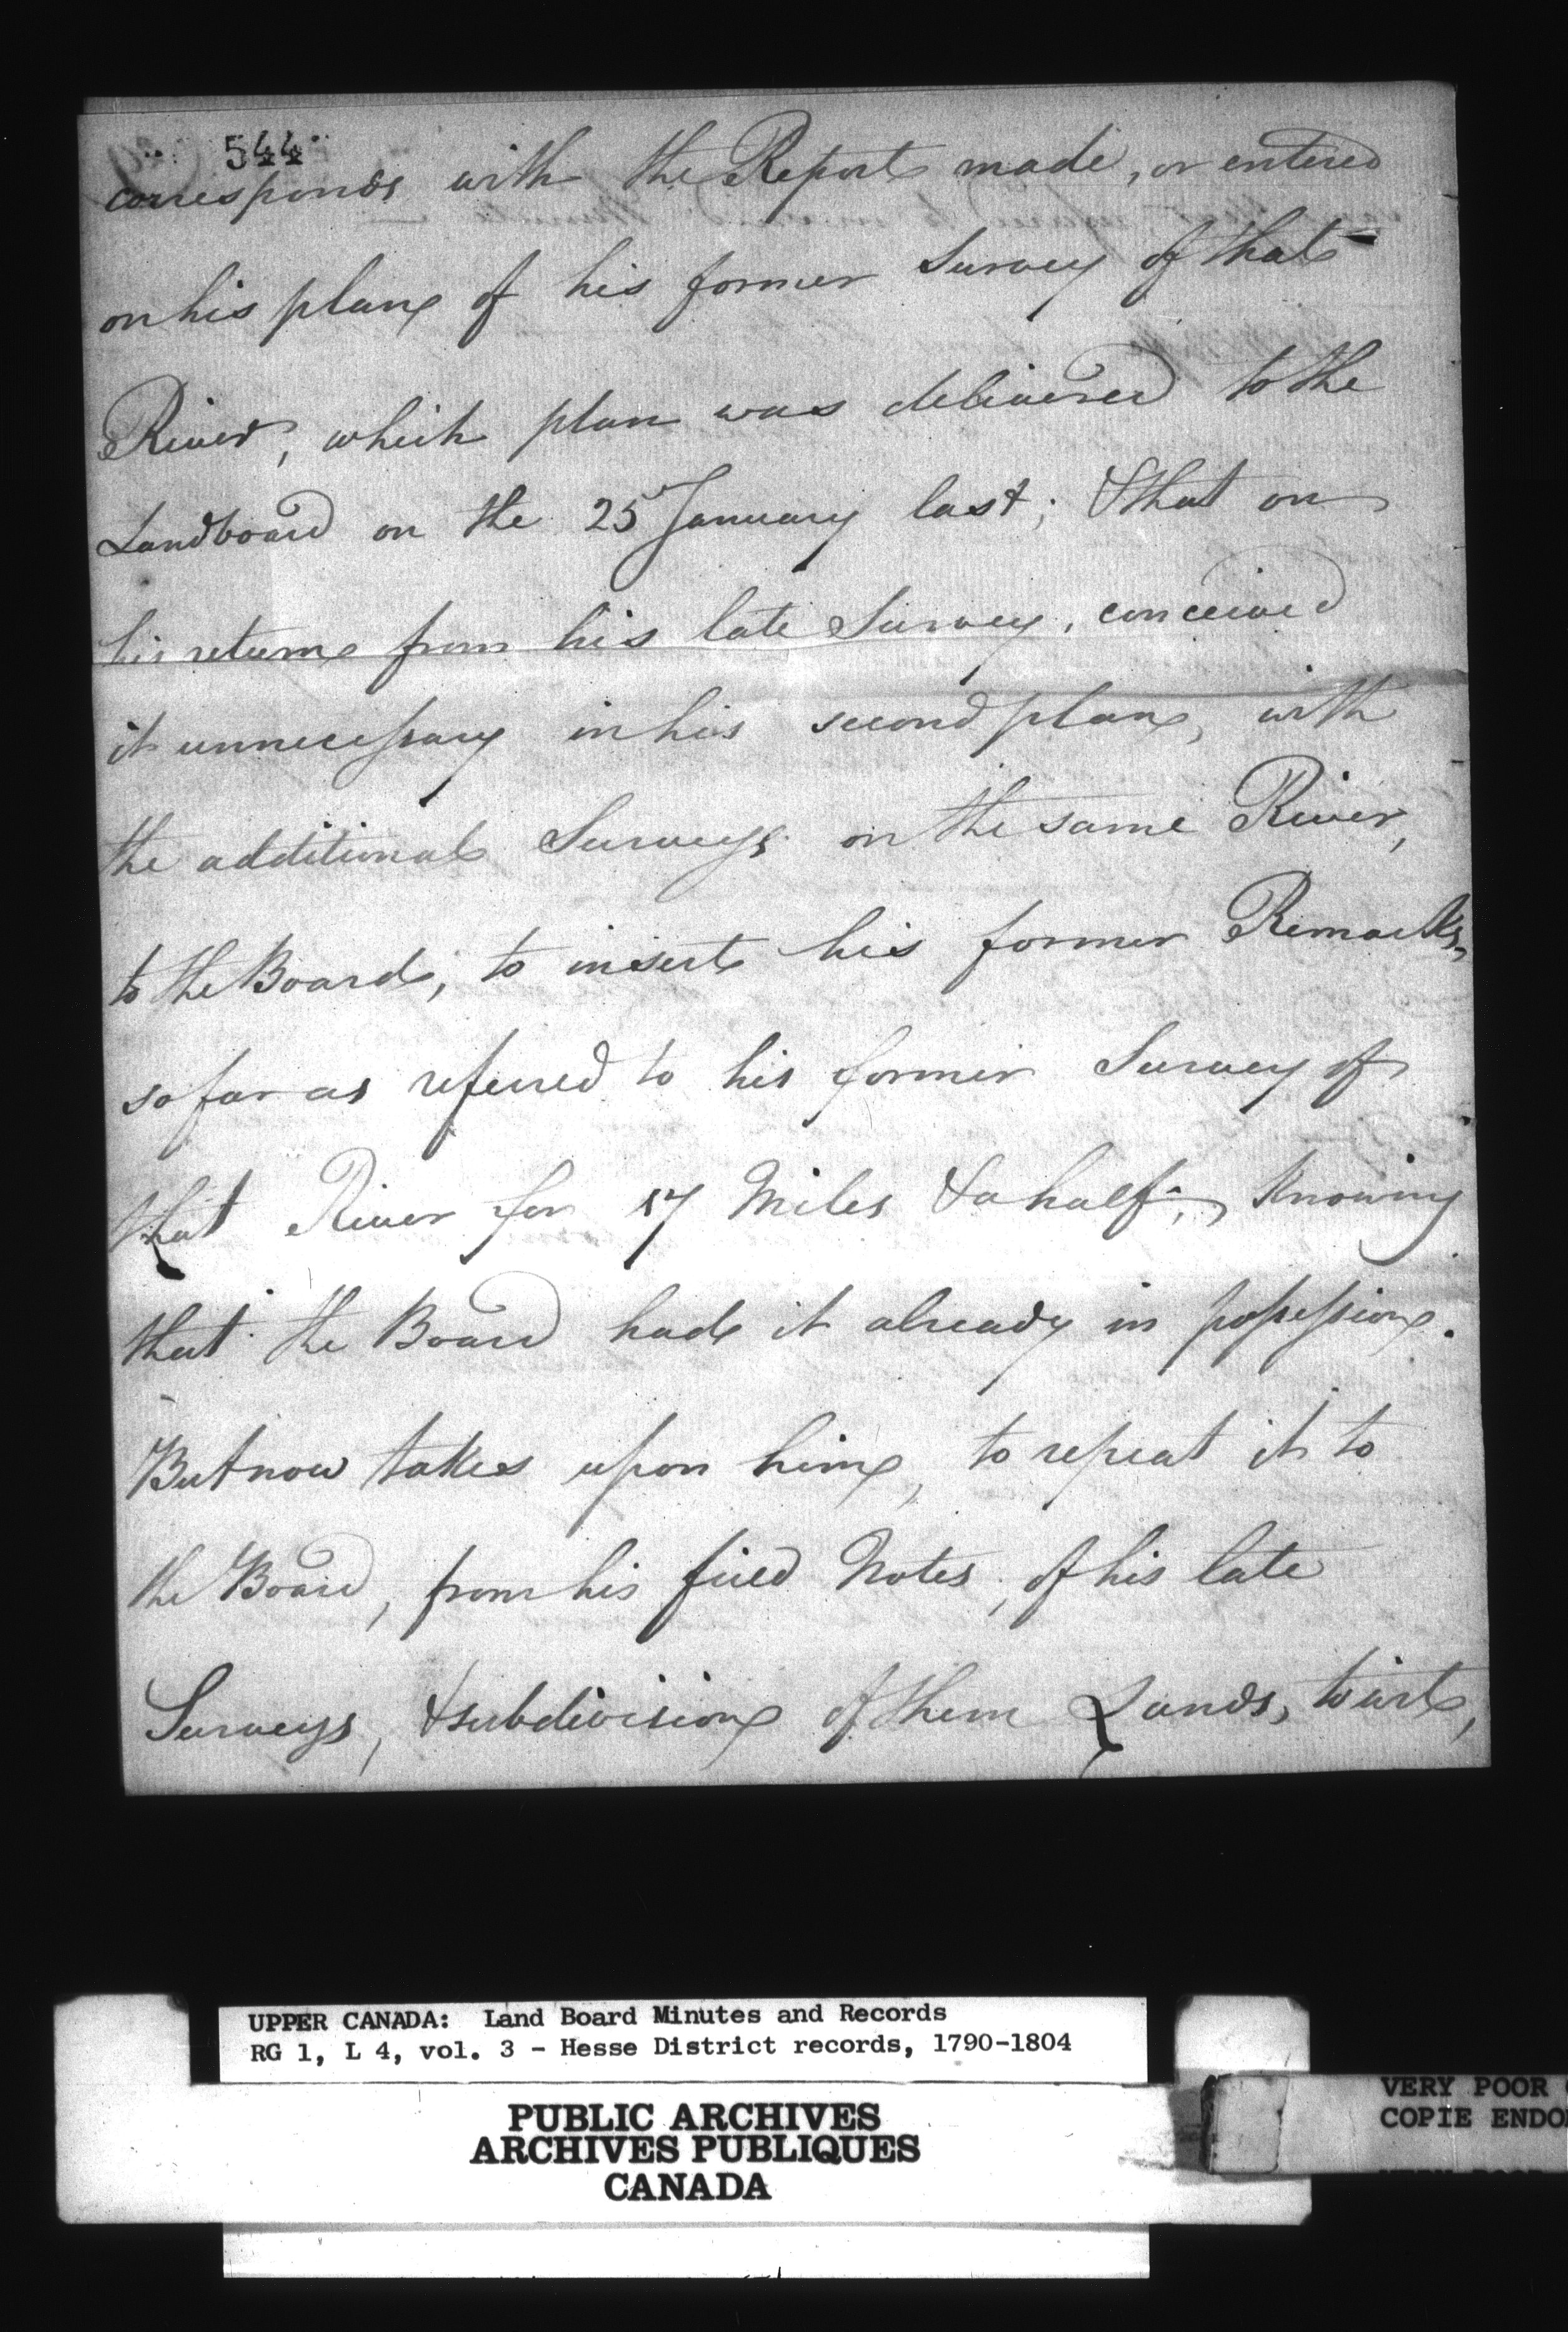 544
corresponds with the Report made, or entered
on his plan of his former Survey of that
River, which plan was delivered to the
Landboard on the 25 January last; & that on
his return from his late Survey, conceived
it unnecessary in his second plan, with
the additional Surveys on the same River,
to the Board, to insert his former Remarks,
so far as referred to his former Survey of
that River for 17 Miles & a half, Knowing
that the Board had it already in possession.
But now takes upon him, to repeat it to
the Board, from his field Notes, of his late
Surveys, & subdivision of them Lands, to wit,
UPPER CANADA: Land Board Minutes and Records
RG 1, L 4, vol. 3 - Hesse District records, 1790-1804
PUBLIC ARCHIVES
ARCHIVES PUBLIQUES
CANADA
VERY POOR
COPIE